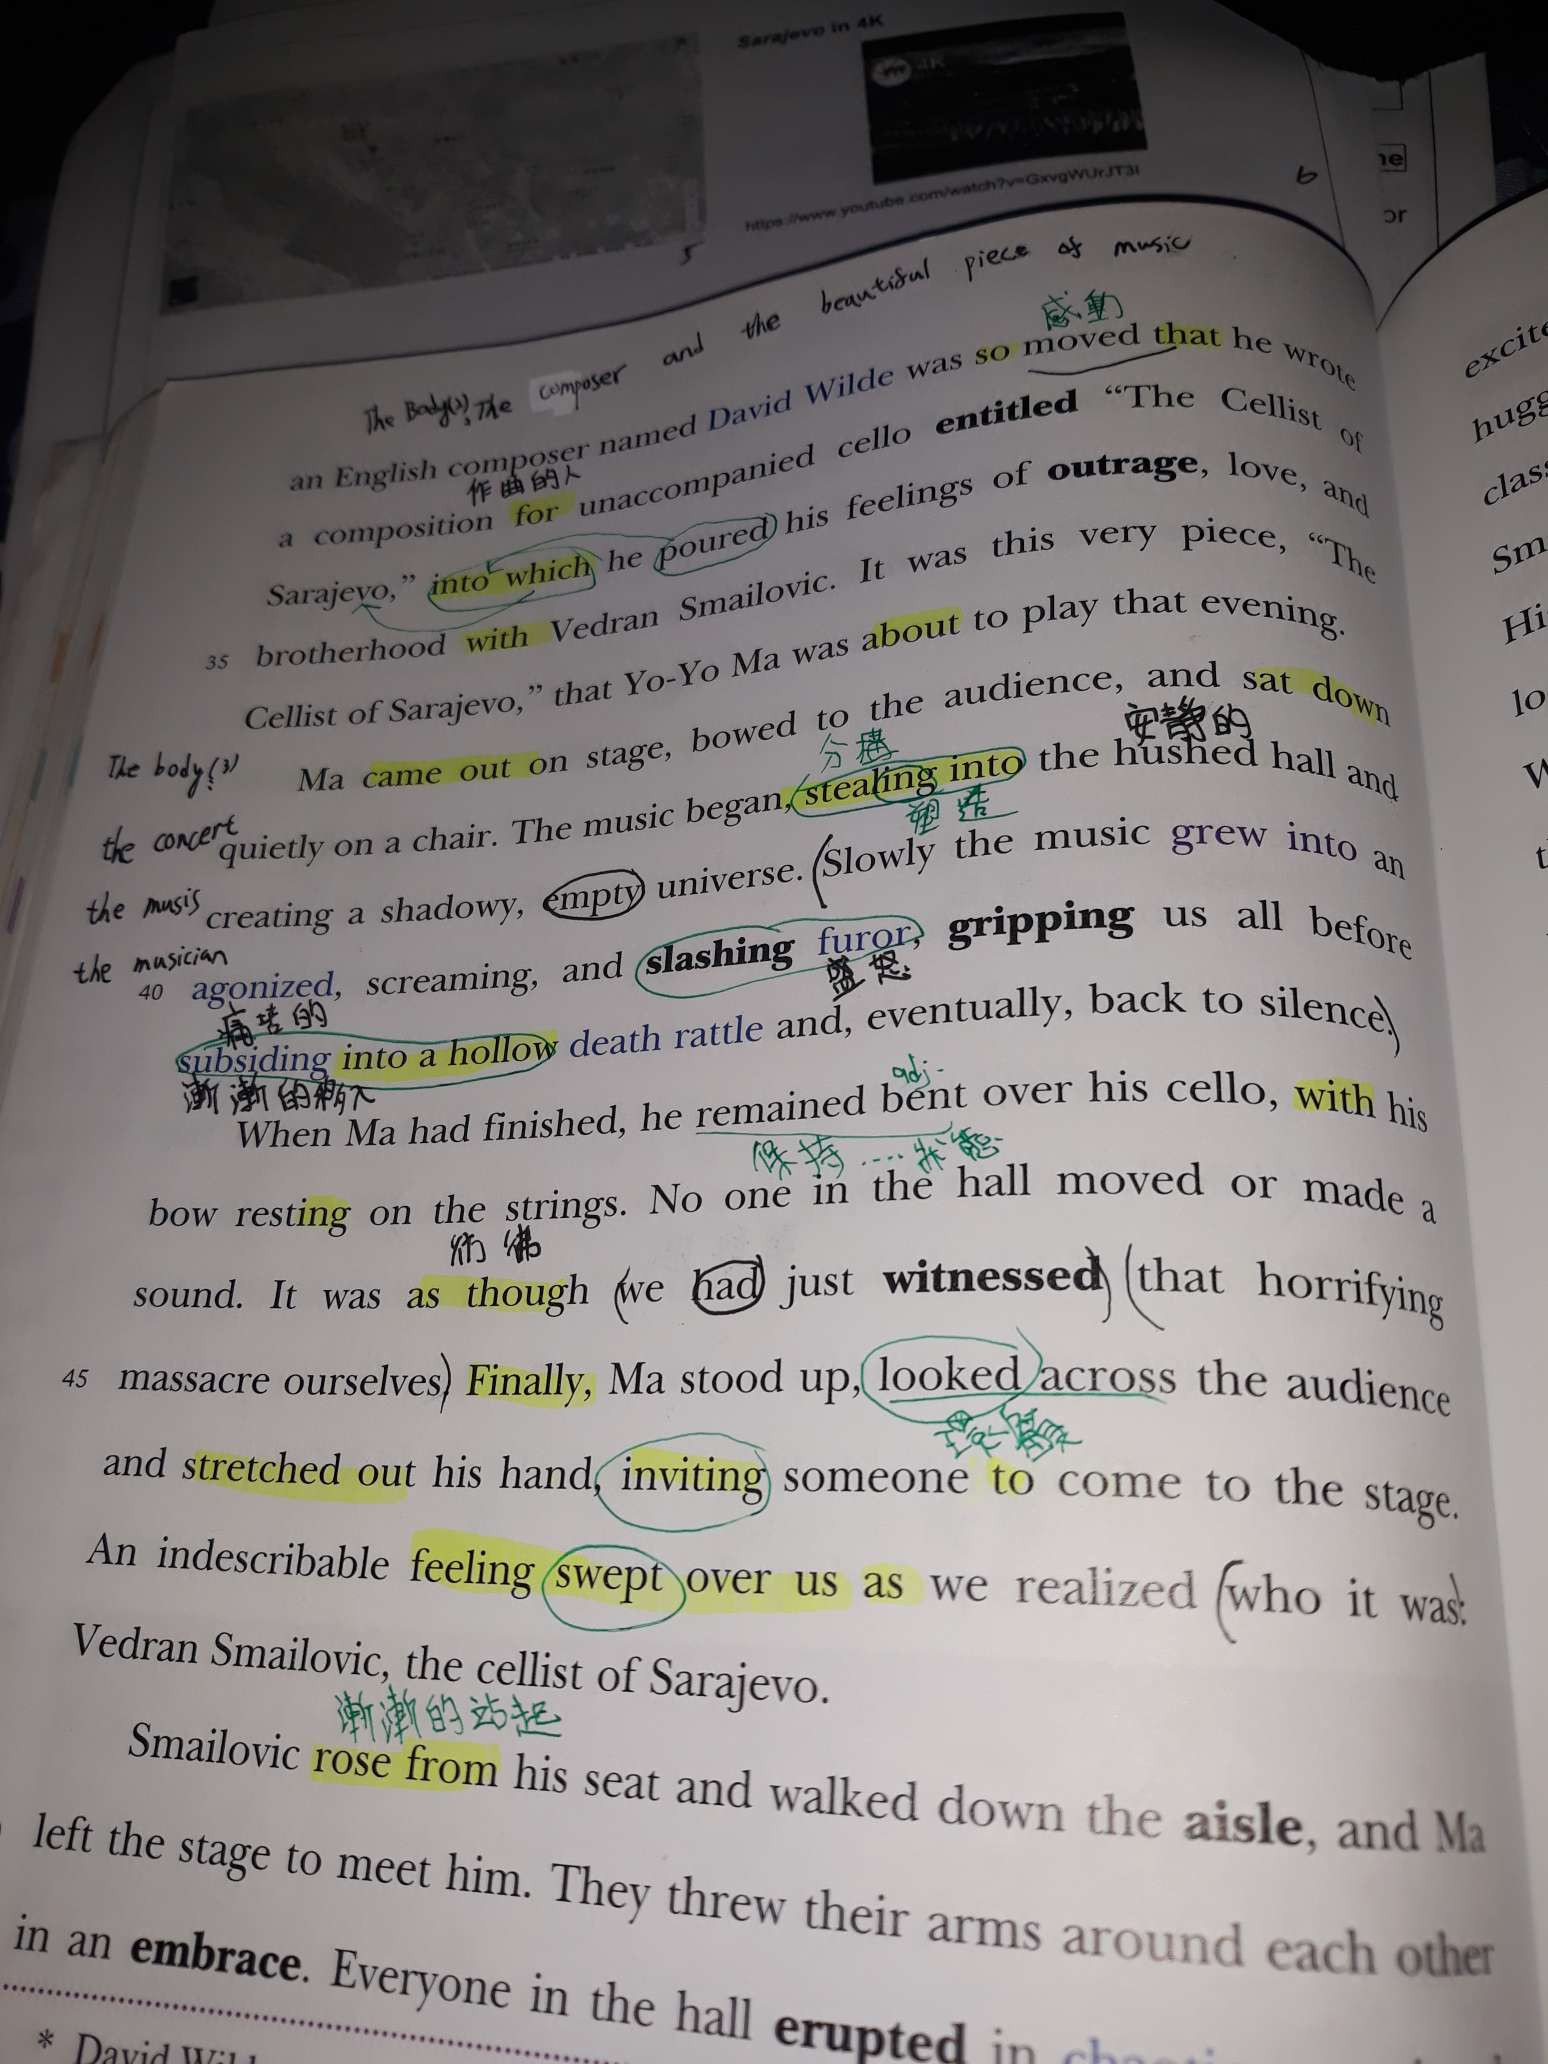 Sarajevo in 4K
4K
https://www.youtube.com/watch?v=GxvgWUrJT3I
5
6
The Body(2): The composer and the beautiful piece of music
感動
an English composer named David Wilde was so moved that he wrote
作曲的人
a composition for unaccompanied cello entitled “The Cellist of
Sarajevo,” into which he poured his feelings of outrage, love, and
35 brotherhood with Vedran Smailovic. It was this very piece, “The
Cellist of Sarajevo,” that Yo-Yo Ma was about to play that evening.
The body(3)
Ma came out on stage, bowed to the audience, and sat down
安靜的
the concert
quietly on a chair. The music began, stealing into the hushed hall and
塑造
the musis
creating a shadowy, empty universe. Slowly the music grew into an
the musician
40 agonized, screaming, and slashing furor, gripping us all before
痛苦的
subsiding into a hollow death rattle and, eventually, back to silence.
漸漸的
adj.
When Ma had finished, he remained bent over his cello, with his
保持....狀態
bow resting on the strings. No one in the hall moved or made a
彷彿
sound. It was as though we had just witnessed that horrifying
45 massacre ourselves. Finally, Ma stood up, looked across the audience
and stretched out his hand, inviting someone to come to the stage.
An indescribable feeling swept over us as we realized who it was:
Vedran Smailovic, the cellist of Sarajevo.
漸漸的站起
Smailovic rose from his seat and walked down the aisle, and Ma
left the stage to meet him. They threw their arms around each other
in an embrace. Everyone in the hall erupted in
* David
ne
or
hugg
Sm
Hi
lo
W
t